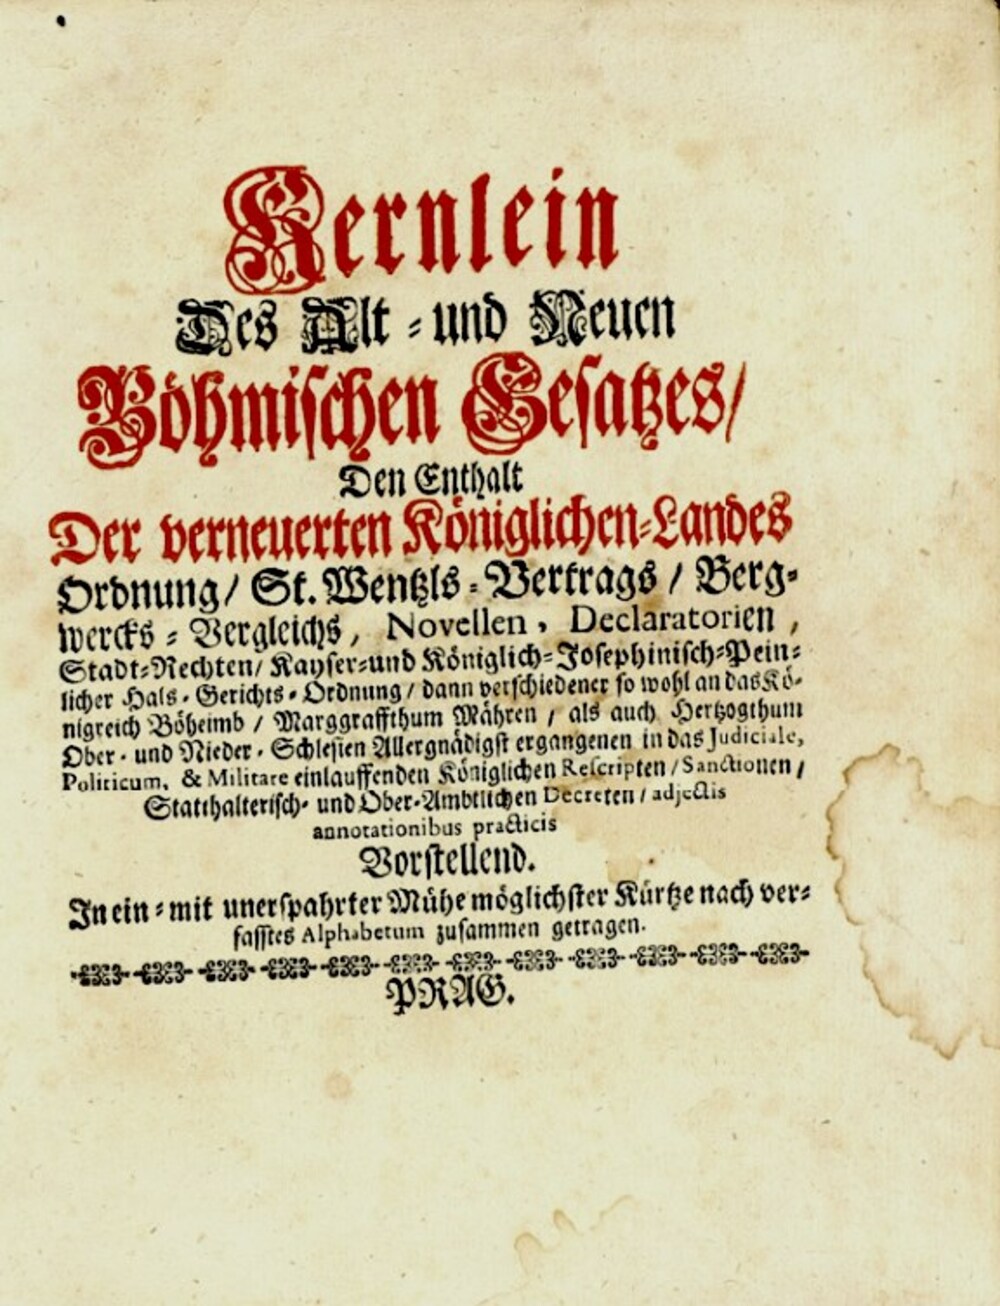 Kernlein
Des Alt - und Neuen
Böhmischen Gesatzes/
Den Enthalt
Der verneuerten Königlichen-Landes
Ordnung/ St. Wentzls-Vertrags / Berg-
wercks-Vergleichs, Novellen, Declaratorien,
Stadt-Rechten/ Kayser-und Königlich-Josephinisch-Pein-
licher Hals-Gerichts-Ordnung/ dann verschiedener so wohl an das Kö-
nigreich Böheimb / Marggraffthum Mähren / als auch Hertzogthum
Ober- und Nieder-Schlesien Allergnädigst ergangenen in das Judiciale,
Politicum, & Militare einlauffenden Königlichen Rescripten/Sanctionen/
Statthalterisch- und Ober-Ambtlichen Decreten/ adjectis
annotationibus practicis
Vorstellend.
In ein-mit unerspahrter Mühe möglichster Kürtze nach ver-
fasstes Alphabetum zusammen getragen.
PRAG.